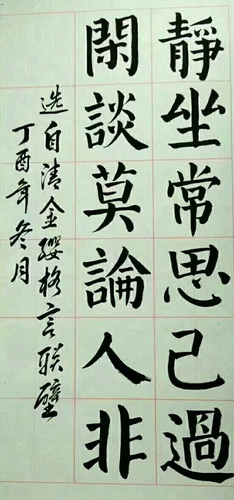 靜坐常思己過
閑談莫論人非
选自清金纓格言联壁
丁酉年冬月